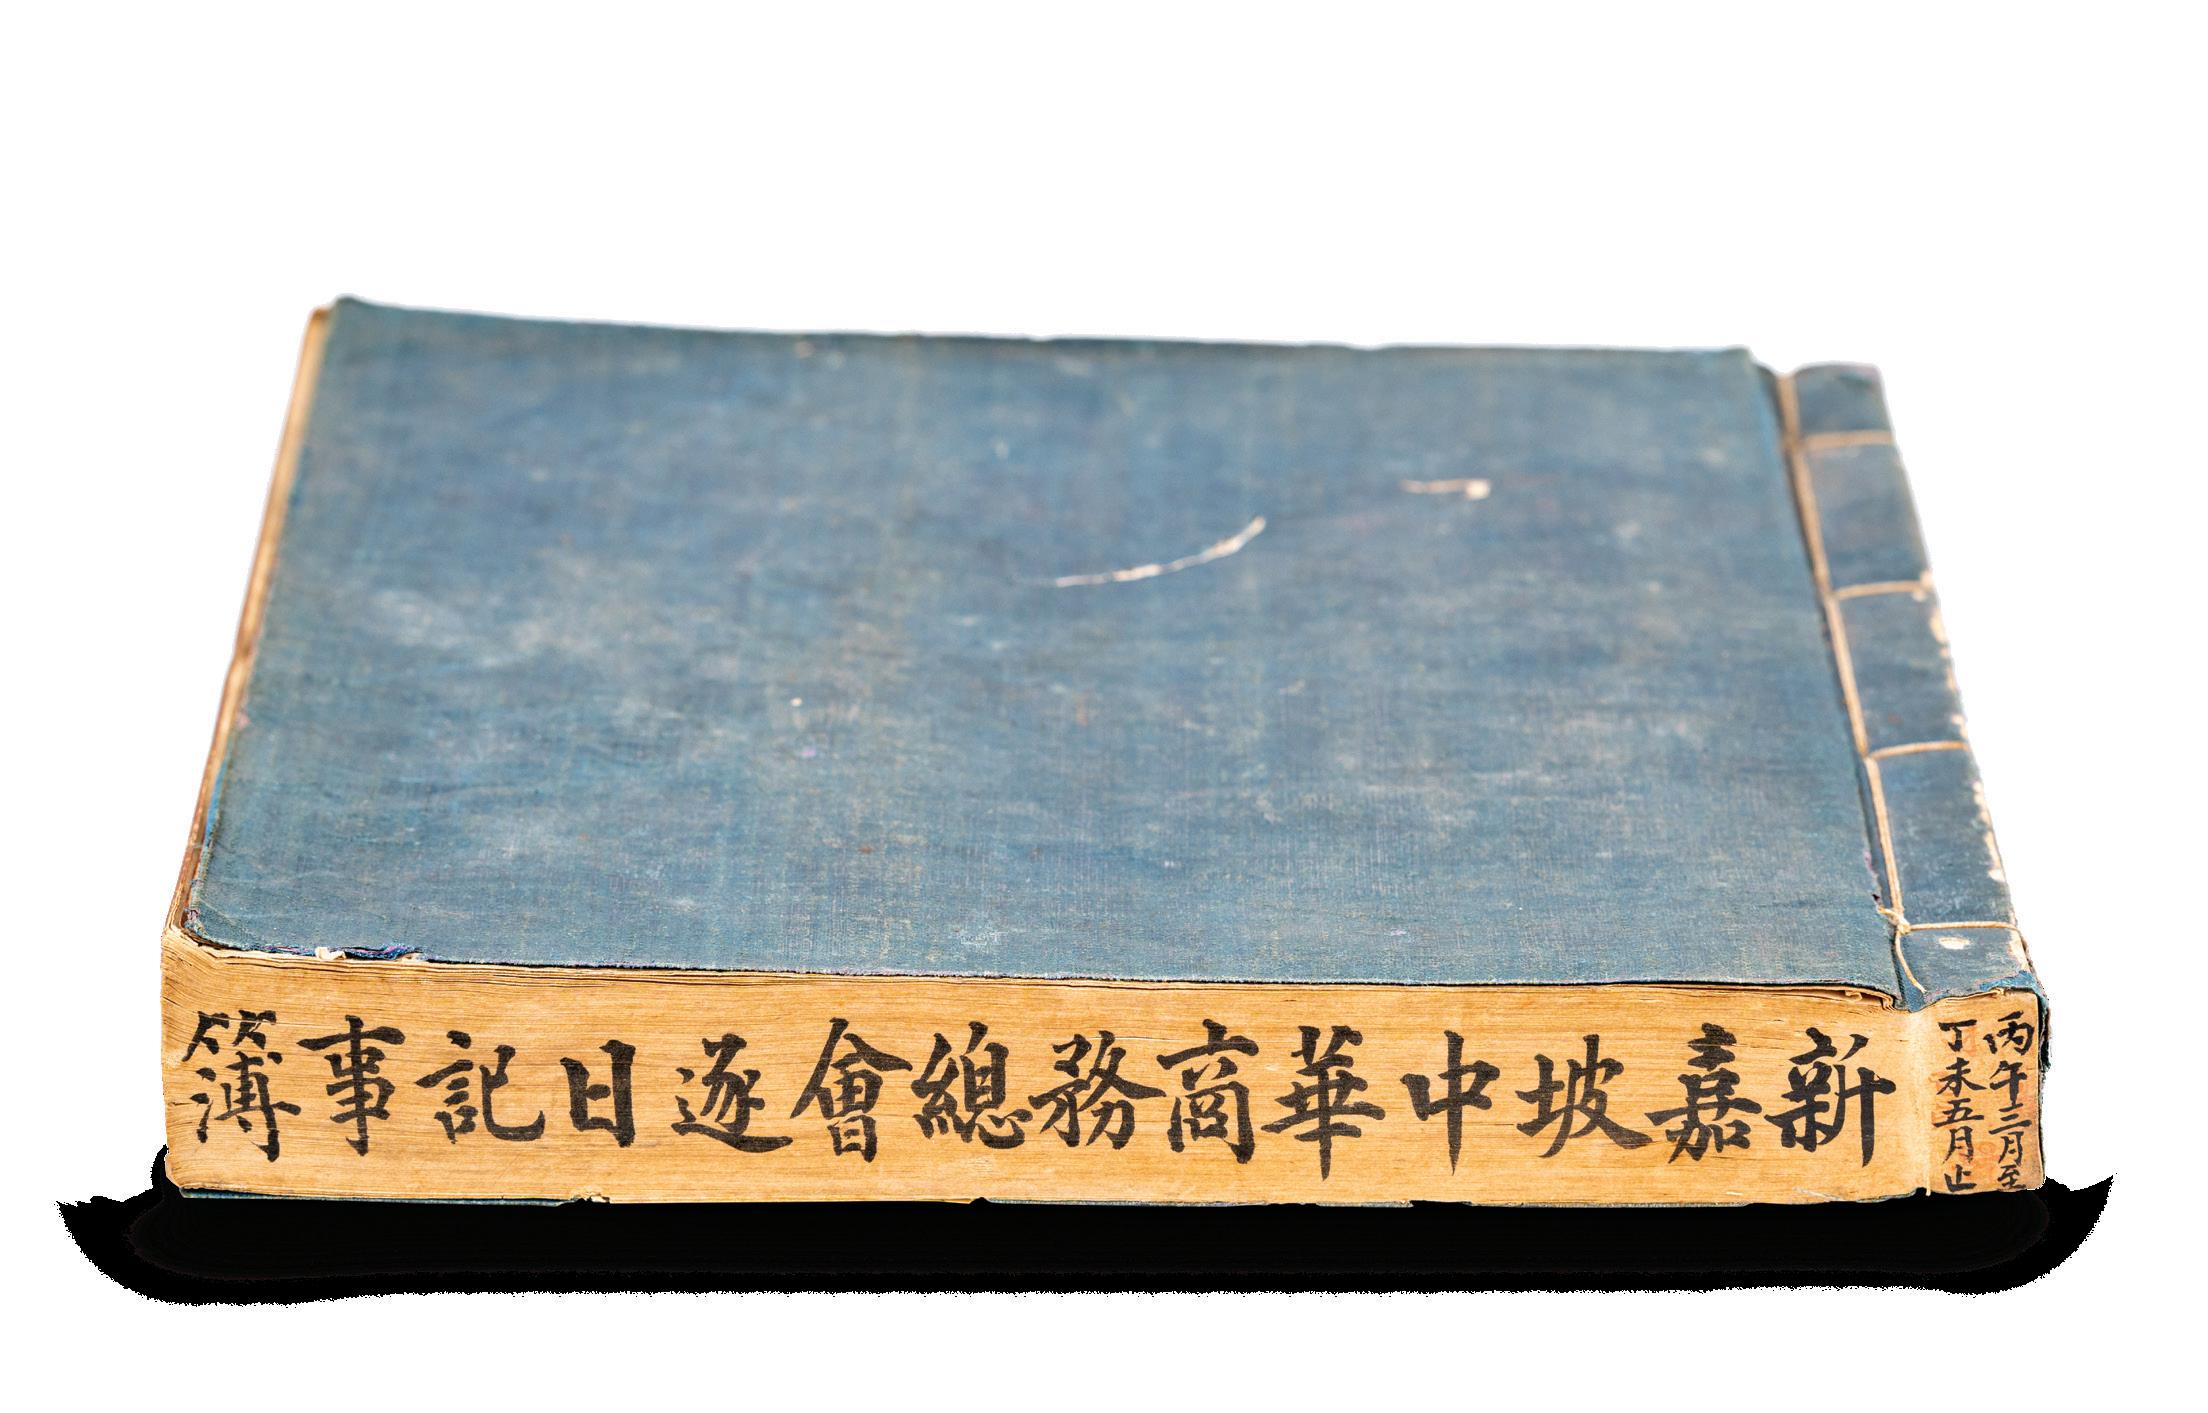 新嘉坡中華商務總會逐日記事簿
丙午三月至
丁未五月止